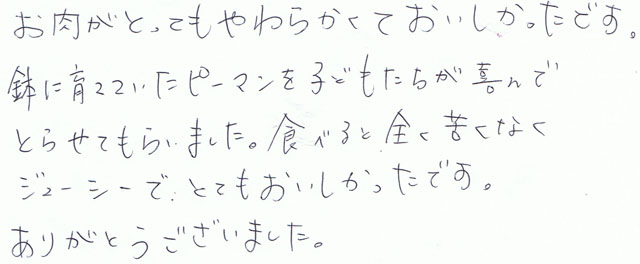 お肉がとってもやわらかくておいしかったです。
鉢に育っていたピーマンを子どもたちが喜んで
とらせてもらいました。食べると全く苦くなく
ジューシーで、とてもおいしかったです。
ありがとうございました。